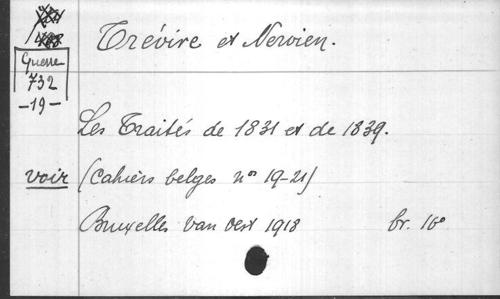 Guerre
732
-19-
Trévire et Nervien.
Les Traités de 1831 et de 1839.
voir (Cahiers belges nos 19-21)
Bruxelles van Oest 1918 br. 16º